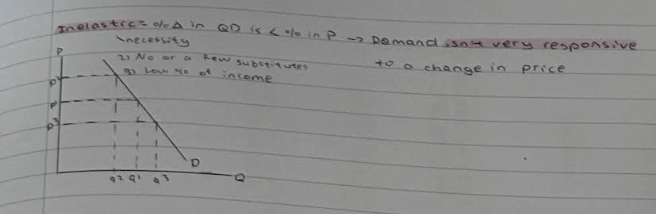 Inelastic = % Δ in QD is < % in P → Demand isn't very responsive
to a change in price
1) necessity
2) No or a few substitutes
3) Low % of income
P
P2
P1
P3
D
Q
q2 q1 q3